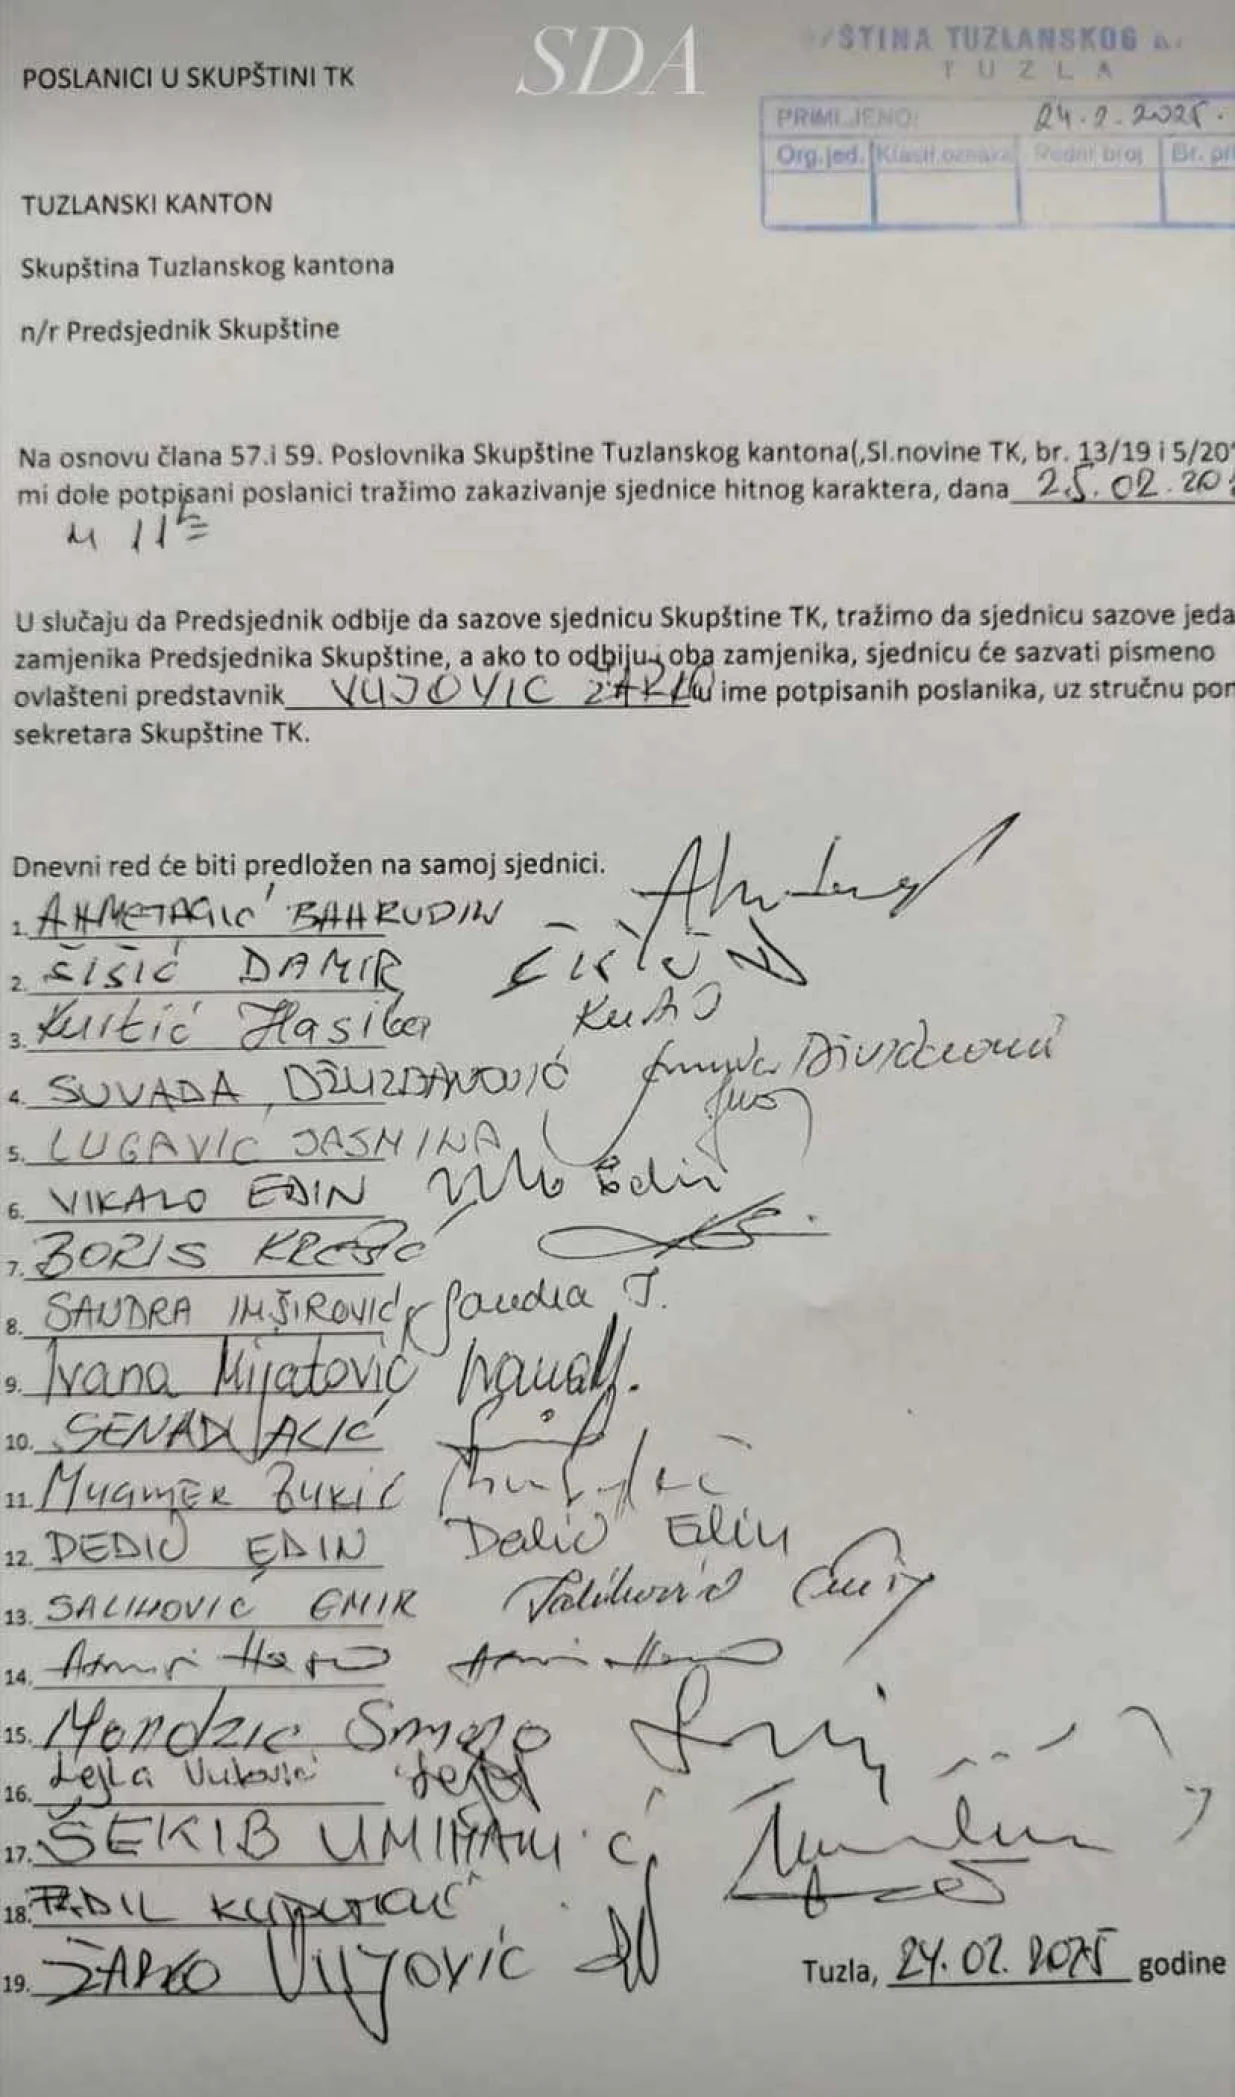 SDA
POSLANICI U SKUPŠTINI TK
ŠTINA TUZLANSKOG
TUZLA
PRIMLJENO: 24.2.2025.
Org.jed. Klasif.oznaka Redni broj Br. pri
TUZLANSKI KANTON
Skupština Tuzlanskog kantona
n/r Predsjednik Skupštine
Na osnovu člana 57.i 59. Poslovnika Skupštine Tuzlanskog kantona(,Sl.novine TK, br. 13/19 i 5/20
mi dole potpisani poslanici tražimo zakazivanje sjednice hitnog karaktera, dana 25.02.20
u 11
U slučaju da Predsjednik odbije da sazove sjednicu Skupštine TK, tražimo da sjednicu sazove jeda
zamjenika Predsjednika Skupštine, a ako to odbiju oba zamjenika, sjednicu će sazvati pismeno
ovlašteni predstavnik VUJOVIC ŽARKO u ime potpisanih poslanika, uz stručnu pom
sekretara Skupštine TK.
Dnevni red će biti predložen na samoj sjednici.
1. AHMETAGIĆ BAHRUDIN
2. ŠIŠIĆ DAMIR
3. Kurtić Hasiba
4. SUVADA DŽUZDANOVIĆ
5. LUGAVIC JASMINA
6. VIKALO EDIN Edin
7. BORIS KREŠIĆ
8. SANDRA IMŠIROVIĆ Sandra I.
9. Ivana Mijatović IvanaM.
10. SENAD ALIĆ
11. MUAMER ZUKIĆ
12. DEDIĆ EDIN Dedić Edin
13. SALIHOVIĆ EMIR Salihović Emir
14.
15. Mandzic Smajo
16. Lejla Vuković Lejla
17. ŠEKIB UMIHANIĆ
18. FADIL
19. ŽARKO VUJOVIĆ
Tuzla, 24.02.2025 godine